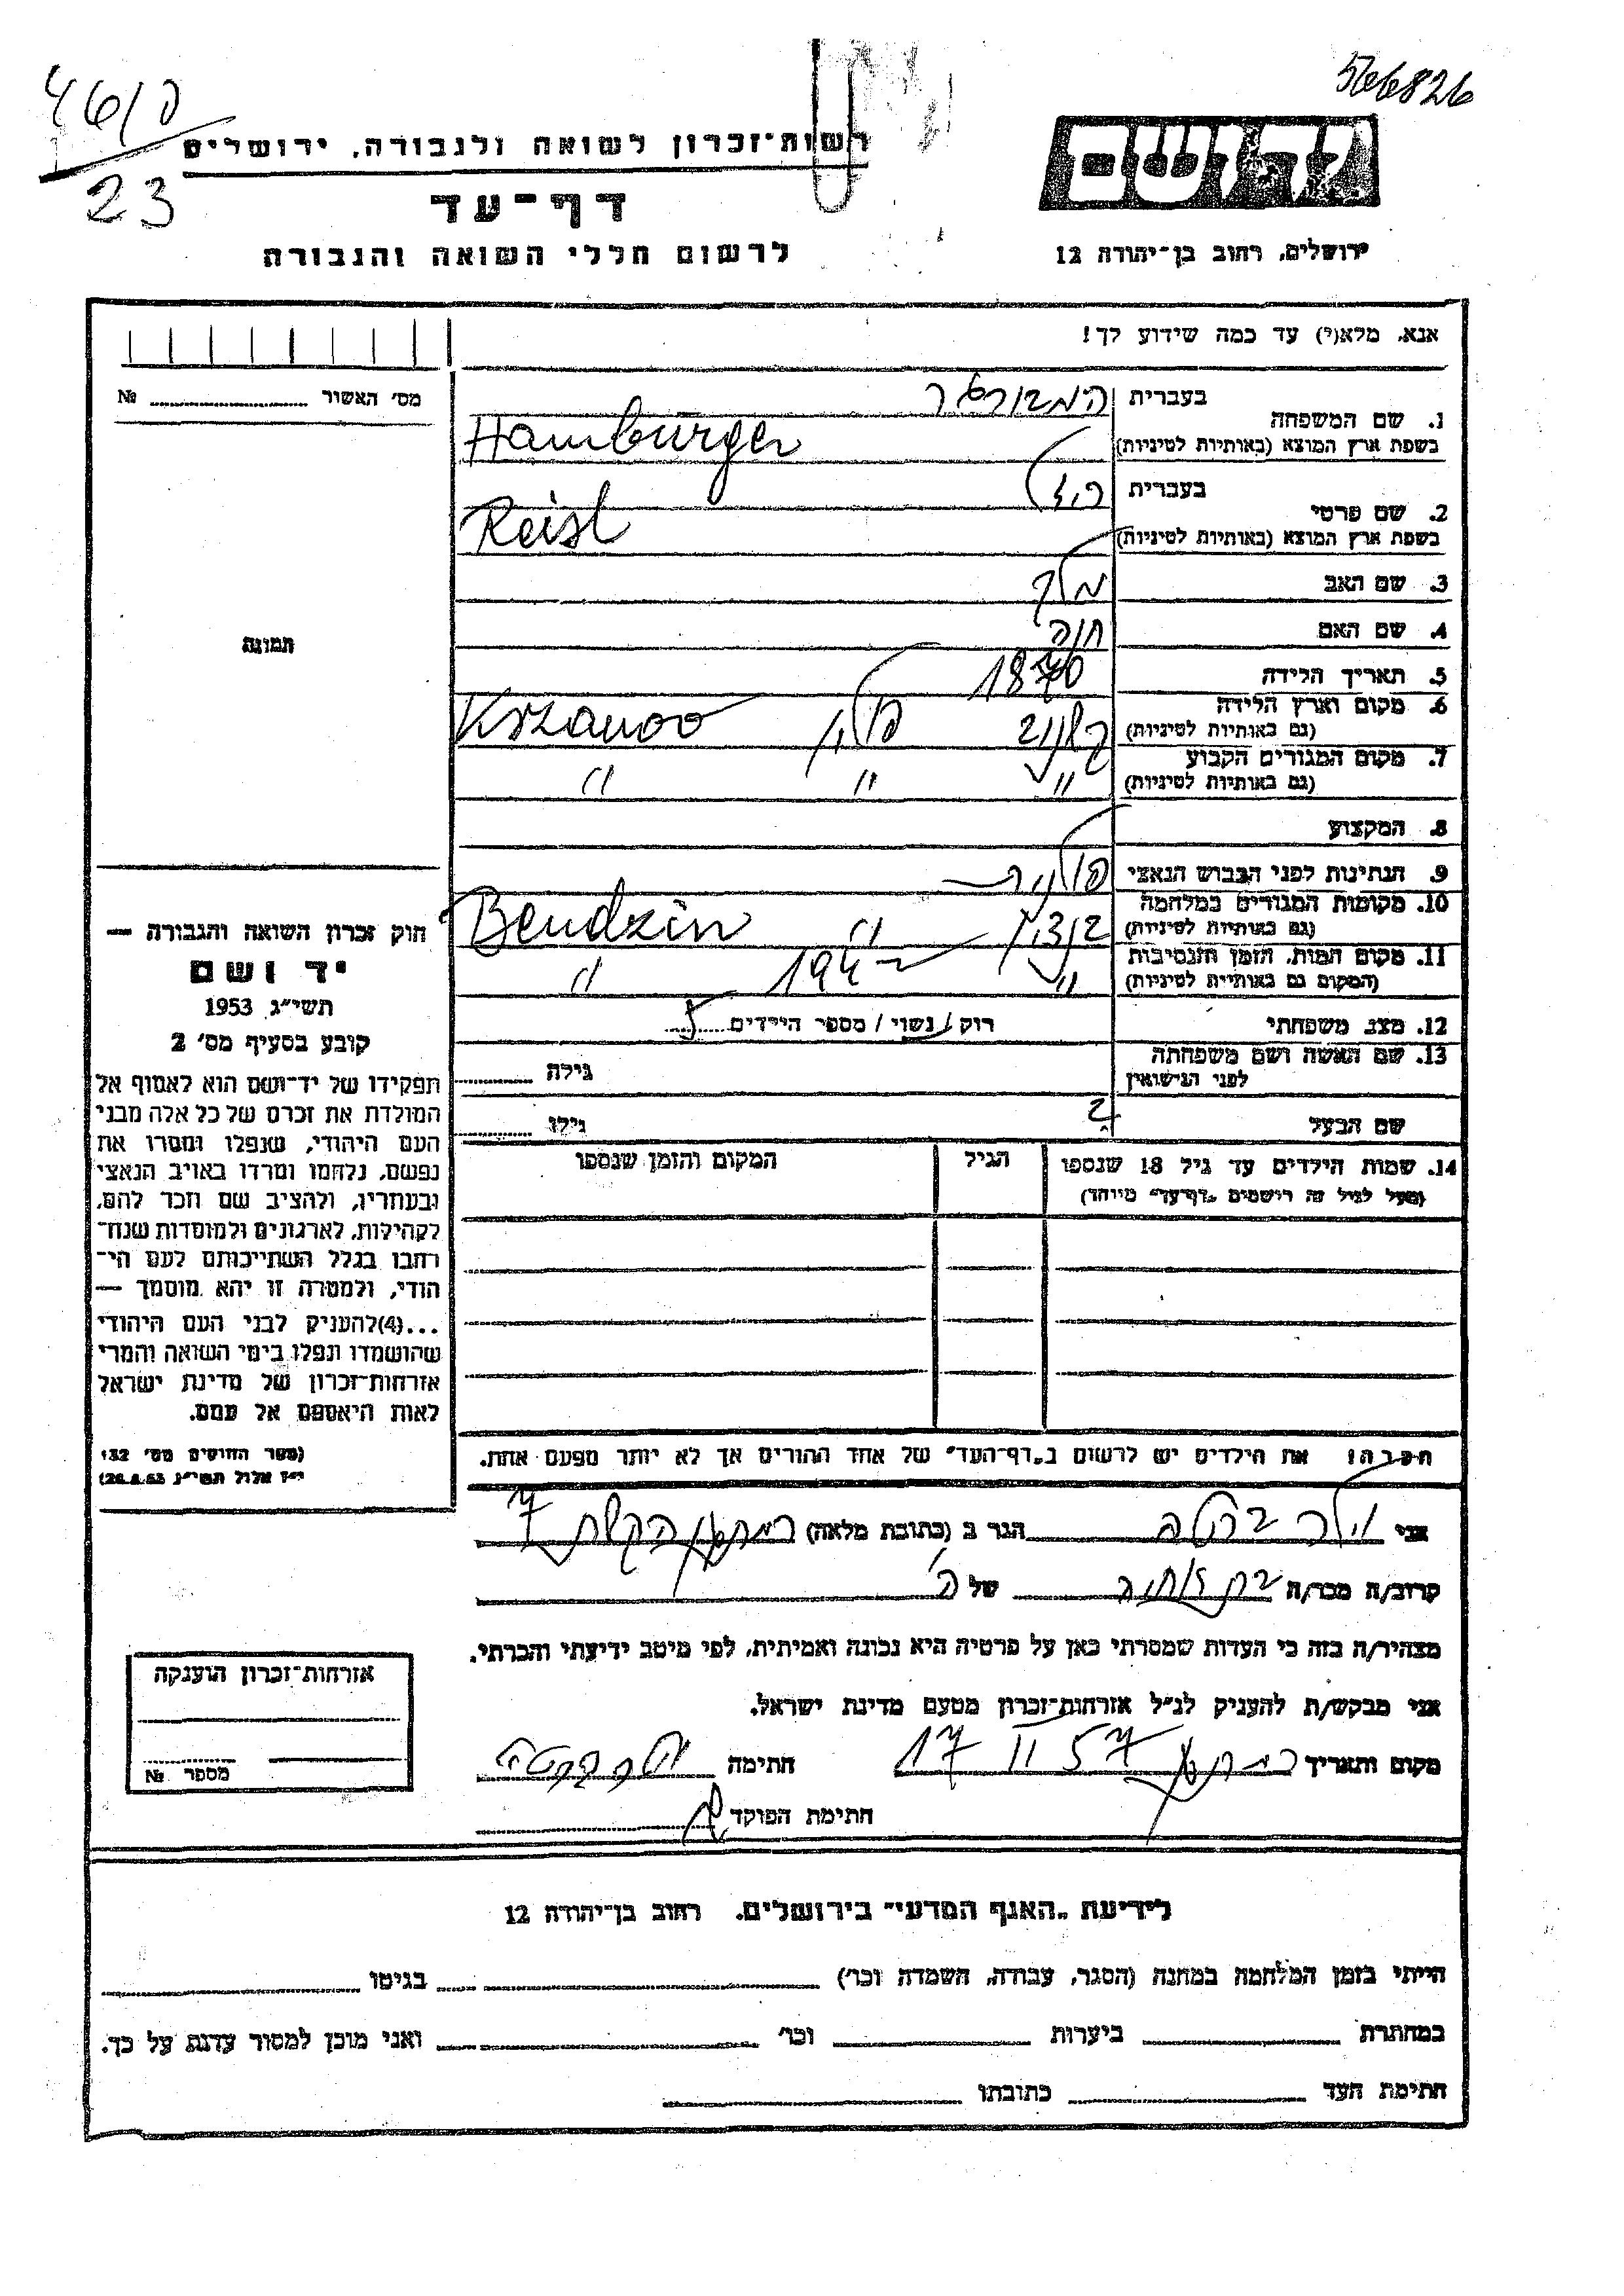 566826
461ף
23
רשות-זכרון לשואה ולגבורה, ירושלים
דף-עד
לרשום חללי השואה והגבורה
יד ושם
ירושלים, רחוב בן-יהודה 12
אנא, מלא(י) עד כמה שידוע לך!
מס' האשור №
1. שם המשפחה
בעברית המבורגר
בשפת ארץ המוצא (באותיות לטיניות) Hamburger
2. שם פרטי
בעברית
בשפת ארץ המוצא (באותיות לטיניות) Reisl
3. שם האב
4. שם האם חוה
5. תאריך הלידה 1870
6. מקום וארץ הלידה
(גם באותיות לטיניות) פולין Krzanov
7. מקום המגורים הקבוע
(גם באותיות לטיניות) " " "
8. המקצוע
9. הנתינות לפני הכבוש הנאצי פולנית
10. מקומות המגורים במלחמה
(גם באותיות לטיניות) בנדzין " Bendzin
11. מקום המות, הזמן והנסיבות
(המקום גם באותיות לטיניות) " 194 "
12. מצב משפחתי רוק/נשוי/ מספר הילדים 5
13. שם האשה ושם משפחתה
לפני הנישואין גילה
שם הבעל ? גילו
14. שמות הילדים עד גיל 18 שנספו
(מעל לגיל זה רישמים "דף-עד" מייחד)
הגיל
המקום והזמן שנספו
הערה! את הילדים יש לרשום ב"דף-העד" של אחד ההורים אך לא יותר מפעם אחת.
תמונה
חוק זכרון השואה והגבורה —
יד ושם
תשי"ג 1953
קובע בסעיף מס' 2
תפקידו של יד-ושם הוא לאסוף אל
המולדת את זכרם של כל אלה מבני
העם היהודי, שנפלו ומסרו את
נפשם, נלחמו ומרדו באויב הנאצי
ובעוזריו, ולהציב שם וזכר להם,
לקהילות, לארגונים ולמוסדות שנח-
רבו בגלל השתייכותם לעם הי-
הודי, ולמטרה זו יהא מוסמך —
...(4)להעניק לבני העם היהודי
שהושמדו ונפלו בימי השואה והמרי
אזרחות-זכרון של מדינת ישראל
לאות היאספם אל עמם.
(ספר החוקים מס' 132
י"ז אלול תשי"ג 28.8.53)
אני הגר ב (כתובת מלאה) 7
קרוב/ה מכר/ה של ה'
מצהיר/ה בזה כי העדות שמסרתי כאן על פרטיה היא נכונה ואמיתית, לפי מיטב ידיעתי והכרתי.
אני מבקש/ת להעניק לנ"ל אזרחות-זכרון מטעם מדינת ישראל.
מקום ותאריך 17 II 57 חתימה
חתימת הפוקד
אזרחות-זכרון הוענקה
מספר №
לידיעת "האגף המדעי" בירושלים. רחוב בן-יהודה 12
הייתי בזמן המלחמה במחנה (הסגר, עבודה, השמדה וכו') בגיטו
במחתרת ביערות וכו' ואני מוכן למסור עדות על כך.
חתימת העד כתובתו